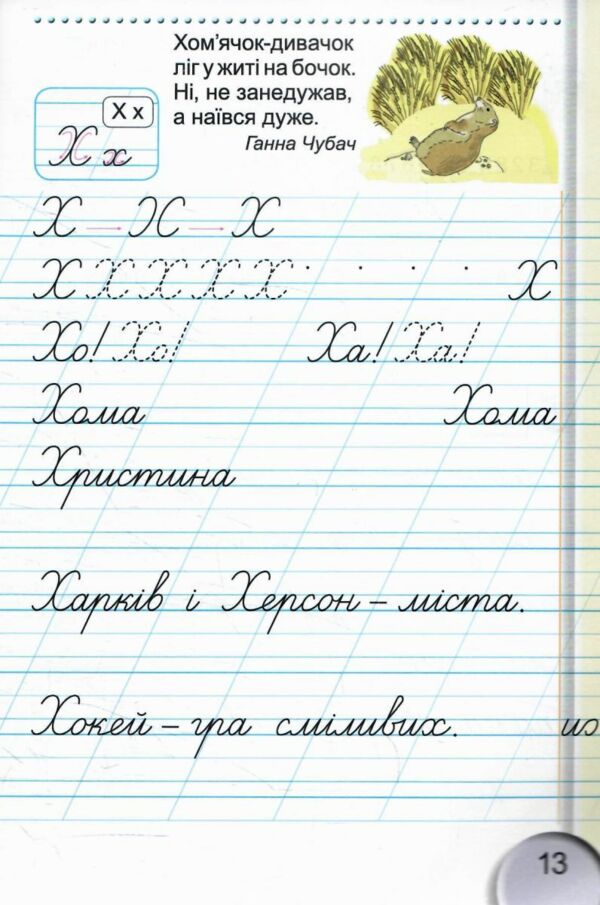 Хом’ячок-дивачок
ліг у житі на бочок.
Ні, не занедужав,
а наївся дуже.
Ганна Чубач
Х х
Х х
Х Х Х
Х Х Х Х Х Х
Хо! Хо! Ха! Ха!
Хома Хома
Христина
Харків і Херсон – міста.
Хокей – гра сміливих. их
13